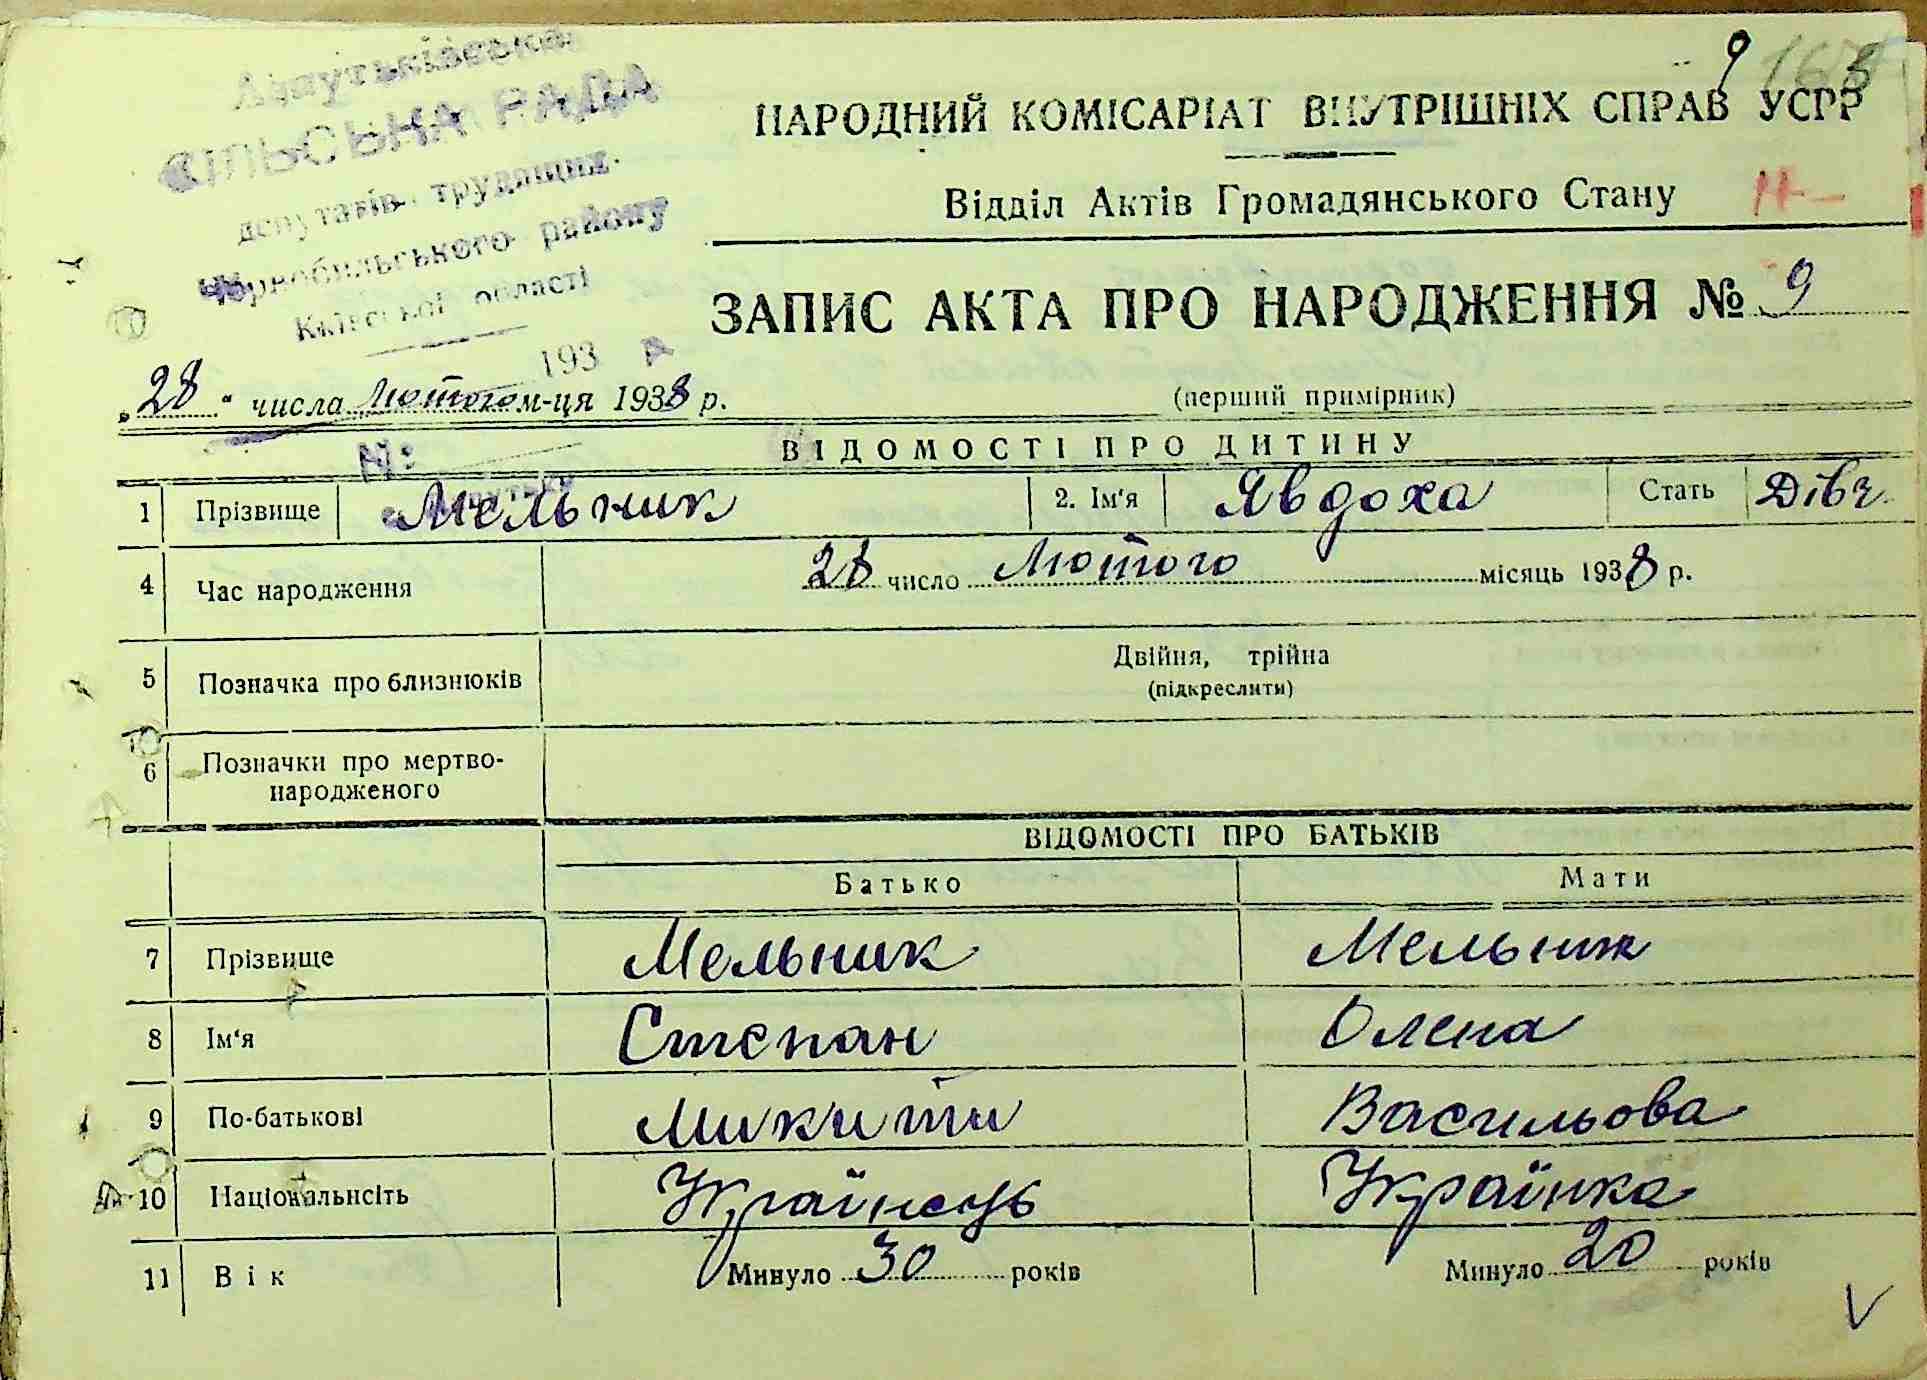 СІЛЬСЬКА РАДА
депутатів трудящих
Чорнобильського району
Київської області
193
9
НАРОДНИЙ КОМІСАРІАТ ВНУТРІШНІХ СПРАВ УСРР
Відділ Актів Громадянського Стану
ЗАПИС АКТА ПРО НАРОДЖЕННЯ № 9
„28“ числа Лютого м-ця 1938 р.
(перший примірник)
№:
ВІДОМОСТІ ПРО ДИТИНУ
1 Прізвище Мельник 2. Ім'я Явдоха Стать Дівч.
4 Час народження 28 число Лютого місяць 1938 р.
5 Позначка про близнюків Двійня, трійна
(підкреслити)
6 Позначки про мертво-
народженого
ВІДОМОСТІ ПРО БАТЬКІВ
Батько Мати
7 Прізвище Мельник Мельник
8 Ім'я Степан Олена
9 По-батькові Микити Васильова
10 Національнсіть Українець Українка
11 Вік Минуло 30 років Минуло 20 років